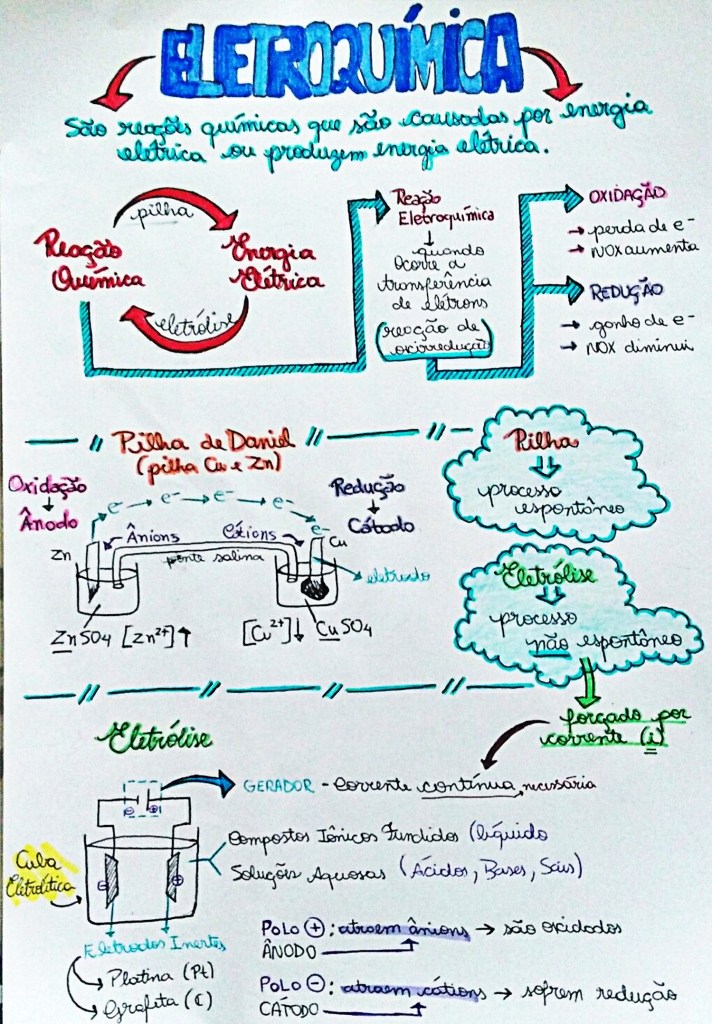 ELETROQUÍMICA
São reações químicas que são causadas por energia
elétrica ou produzem energia elétrica.
pilha
Reação
Química
Energia
Elétrica
eletrólise
Reação
Eletroquímica
quando
ocorre a
transferência
de elétrons
(reação de
oxirredução)
OXIDAÇÃO
→ perda de e-
→ NOX aumenta
REDUÇÃO
→ ganho de e-
→ NOX diminui
Pilha de Daniel
(pilha Cu e Zn)
Oxidação
Ânodo
e- → e- → e- → e-
Redução
Cátodo
e-
Zn
Ânions
Cátions
Cu
ponte salina
eletrodo
ZnSO4 [Zn2+] ↑
[Cu2+] ↓ CuSO4
Pilha
processo
espontâneo
Eletrólise
processo
não espontâneo
forçado por
corrente (i)
Eletrólise
GERADOR - Corrente contínua necessária
⊖ ⊕
Compostos Iônicos Fundidos (líquido
Soluções Aquosas (Ácidos, Bases, Sais)
Cuba
Eletrolítica
⊖ ⊕
Eletrodos Inertes
Platina (Pt)
Grafita (C)
POLO ⊕: atraem ânions → são oxidados
ÂNODO
POLO ⊖: atraem cátions → sofrem redução
CÁTODO